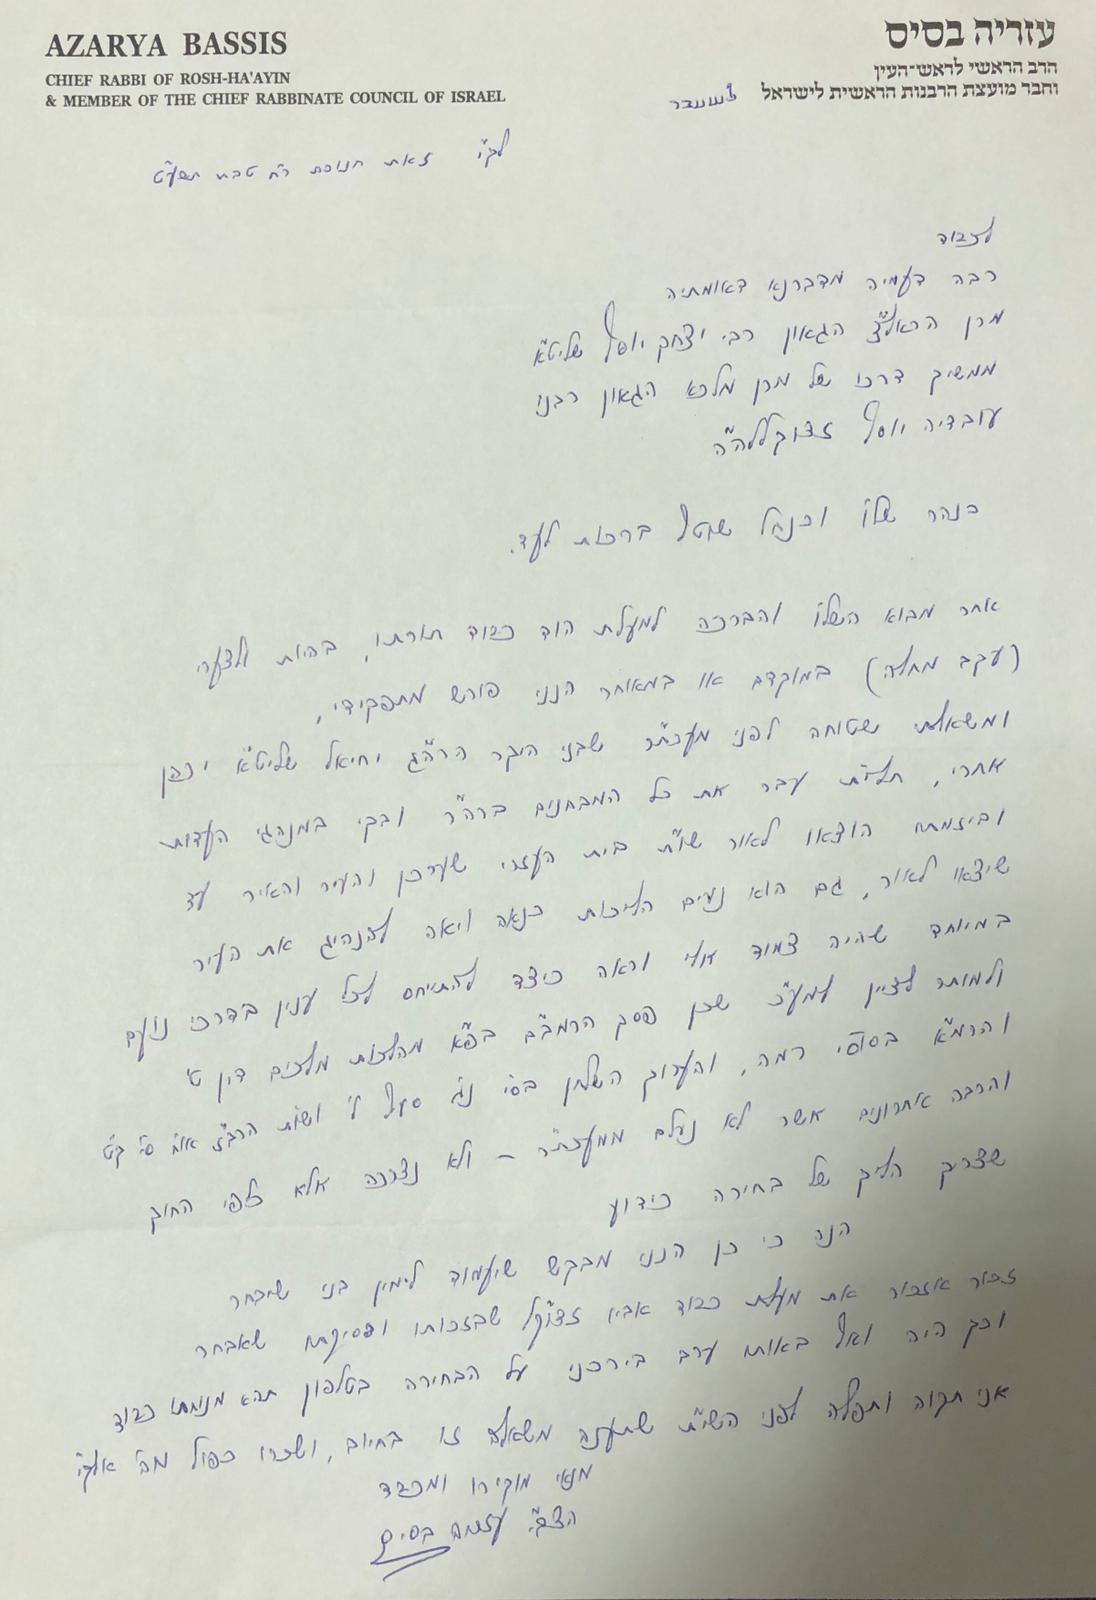 AZARYA BASSIS
CHIEF RABBI OF ROSH-HA'AYIN
& MEMBER OF THE CHIEF RABBINATE COUNCIL OF ISRAEL
עזריה בסיס
הרב הראשי לראש־העין
וחבר מועצת הרבנות הראשית לישראל
לשעבר
זאת חנוכת ר"ח טבת תשע"ט
לכבוד
רבה דעמיה מדברנא דאומתיה
מרן הראש"ל הגאון רבי יצחק יוסף שליט"א
ממשיך דרכו של מרן מלכא הגאון רבנו
עובדיה יוסף זצוקללה"ה
כנהר שלו' וכנחל שוטף ברכות לעד.
אחר מבוא השלו' והברכה למעלת הוד כבוד תורתו, בהיות ולצערי
(עקב מחלה) במוקדם או במאוחר הנני פורש מתפקידי,
ומשאלתי שטוחה לפני מעכ"ת שבני היקר הרה"ג יחיאל שליט"א יכהן
אחרי, ת"ל עבר את כל המבחנים ברה"ר ובקי במנהגי העדות
וביוזמתו הוצאו לאור שו"ת בית העזרי שערכן והעיר והאיר עד
שיצאו לאור, גם הוא נעים הליכות כנאה ויאה להנהיג את העיר
במיוחד שהיה צמוד אלי וראה כיצד להתייחס לכל ענין בדרכי נועם
ולמותר לציין למע"כ שכן פסק הרמב"ם בפ"א מהלכות מלכים דין ט'
והרמ"א בסוסי' רמה, והערוך השלחן בסי' נ"ג סעיף ושו"ת
והרבה אחרונים אשר לא נעלם ממעכ"ת - ולא נצרכה אלא לפי החוק
שצריך הליך של בחירה כידוע
הנה כי כן הנני מבקש שיעמוד לימין בני שיבחר
זכור אזכור את מעלת כבוד אביו זצוק"ל שבזכותו ופסיקתו שאבחר
וכך היה ואף באותו ערב בירכני על הבחירה בטלפון תהא מנוחתו כבוד
אני תקוה ותפלה לפני השי"ת שתענה משאלה זו בחיוב, ושכרו כפול מה' אלקי
מנאי מוקירו ומכבדו
הצב"י עזריה בסיס